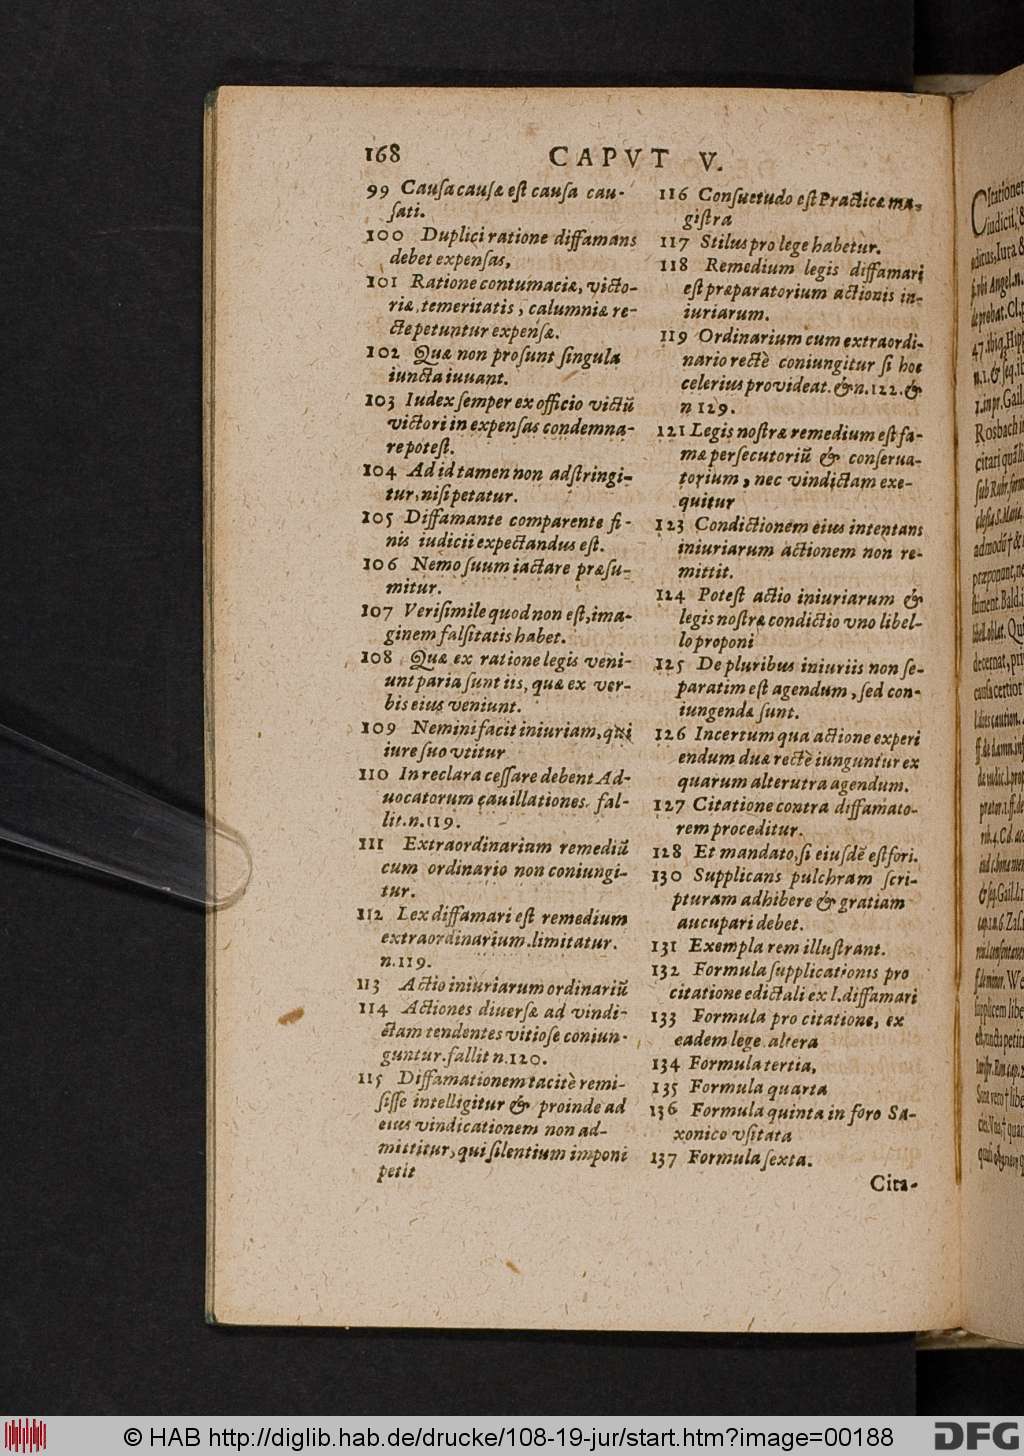 168 CAPVT V.
99 Cauſa cauſæ eſt cauſa cau-
ſati.
100 Duplici ratione diffamans
debet expenſas,
101 Ratione contumaciæ, victo-
riæ, temeritatis, calumniæ re-
cte petuntur expenſæ.
102 Quæ non proſunt ſingula
iuncta iuuant.
103 Iudex ſemper ex officio victū
victori in expenſas condemna-
re poteſt.
104 Ad id tamen non adſtringi-
tur, niſi petatur.
105 Diffamante comparente fi-
nis iudicii expectandus eſt.
106 Nemo ſuum iactare præſu-
mitur.
107 Veriſimile quod non eſt, ima-
ginem falſitatis habet.
108 Quæ ex ratione legis veni-
unt paria ſunt iis, quæ ex ver-
bis eius veniunt.
109 Nemini facit iniuriam, qui
iure ſuo vtitur
110 In re clara ceſſare debent Ad-
uocatorum cauillationes. fal-
lit. n. 119.
111 Extraordinarium remediū
cum ordinario non coniungi-
tur.
112 Lex diffamari eſt remedium
extraordinarium. limitatur.
n. 119.
113 Actio iniuriarum ordinariū
114 Actiones diuerſæ ad vindi-
ctam tendentes vitioſe coniun-
guntur. fallit n. 120.
115 Diffamationem tacitè remi-
ſiſſe intelligitur & proinde ad
eius vindicationem non ad-
mittitur, qui ſilentium imponi
petit
116 Conſuetudo eſt Practicæ ma-
giſtra
117 Stilus pro lege habetur.
118 Remedium legis diffamari
eſt præparatorium actionis in-
iuriarum.
119 Ordinarium cum extraordi-
nario rectè coniungitur ſi hoc
celerius prouideat. & n. 122. &
n 129.
121 Legis noſtræ remedium eſt fa-
mæ perſecutoriū & conſerua-
torium, nec vindictam exe-
quitur
123 Condictionem eius intentans
iniuriarum actionem non re-
mittit.
124 Poteſt actio iniuriarum &
legis noſtræ condictio vno libel-
lo proponi
125 De pluribus iniuriis non ſe-
paratim eſt agendum, ſed con-
iungendæ ſunt.
126 Incertum qua actione experi
endum duæ rectè iunguntur ex
quarum alterutra agendum.
127 Citatione contra diffamato-
rem proceditur.
128 Et mandato, ſi eiuſdē eſt fori.
130 Supplicans pulchram ſcri-
pturam adhibere & gratiam
aucupari debet.
131 Exempla rem illuſtrant.
132 Formula ſupplicationis pro
citatione edictali ex l. diffamari
133 Formula pro citatione, ex
eadem lege altera
134 Formula tertia,
135 Formula quarta
136 Formula quinta in foro Sa-
xonico vſitata
137 Formula ſexta.
Cita-
© HAB http://diglib.hab.de/drucke/108-19-jur/start.htm?image=00188
DFG